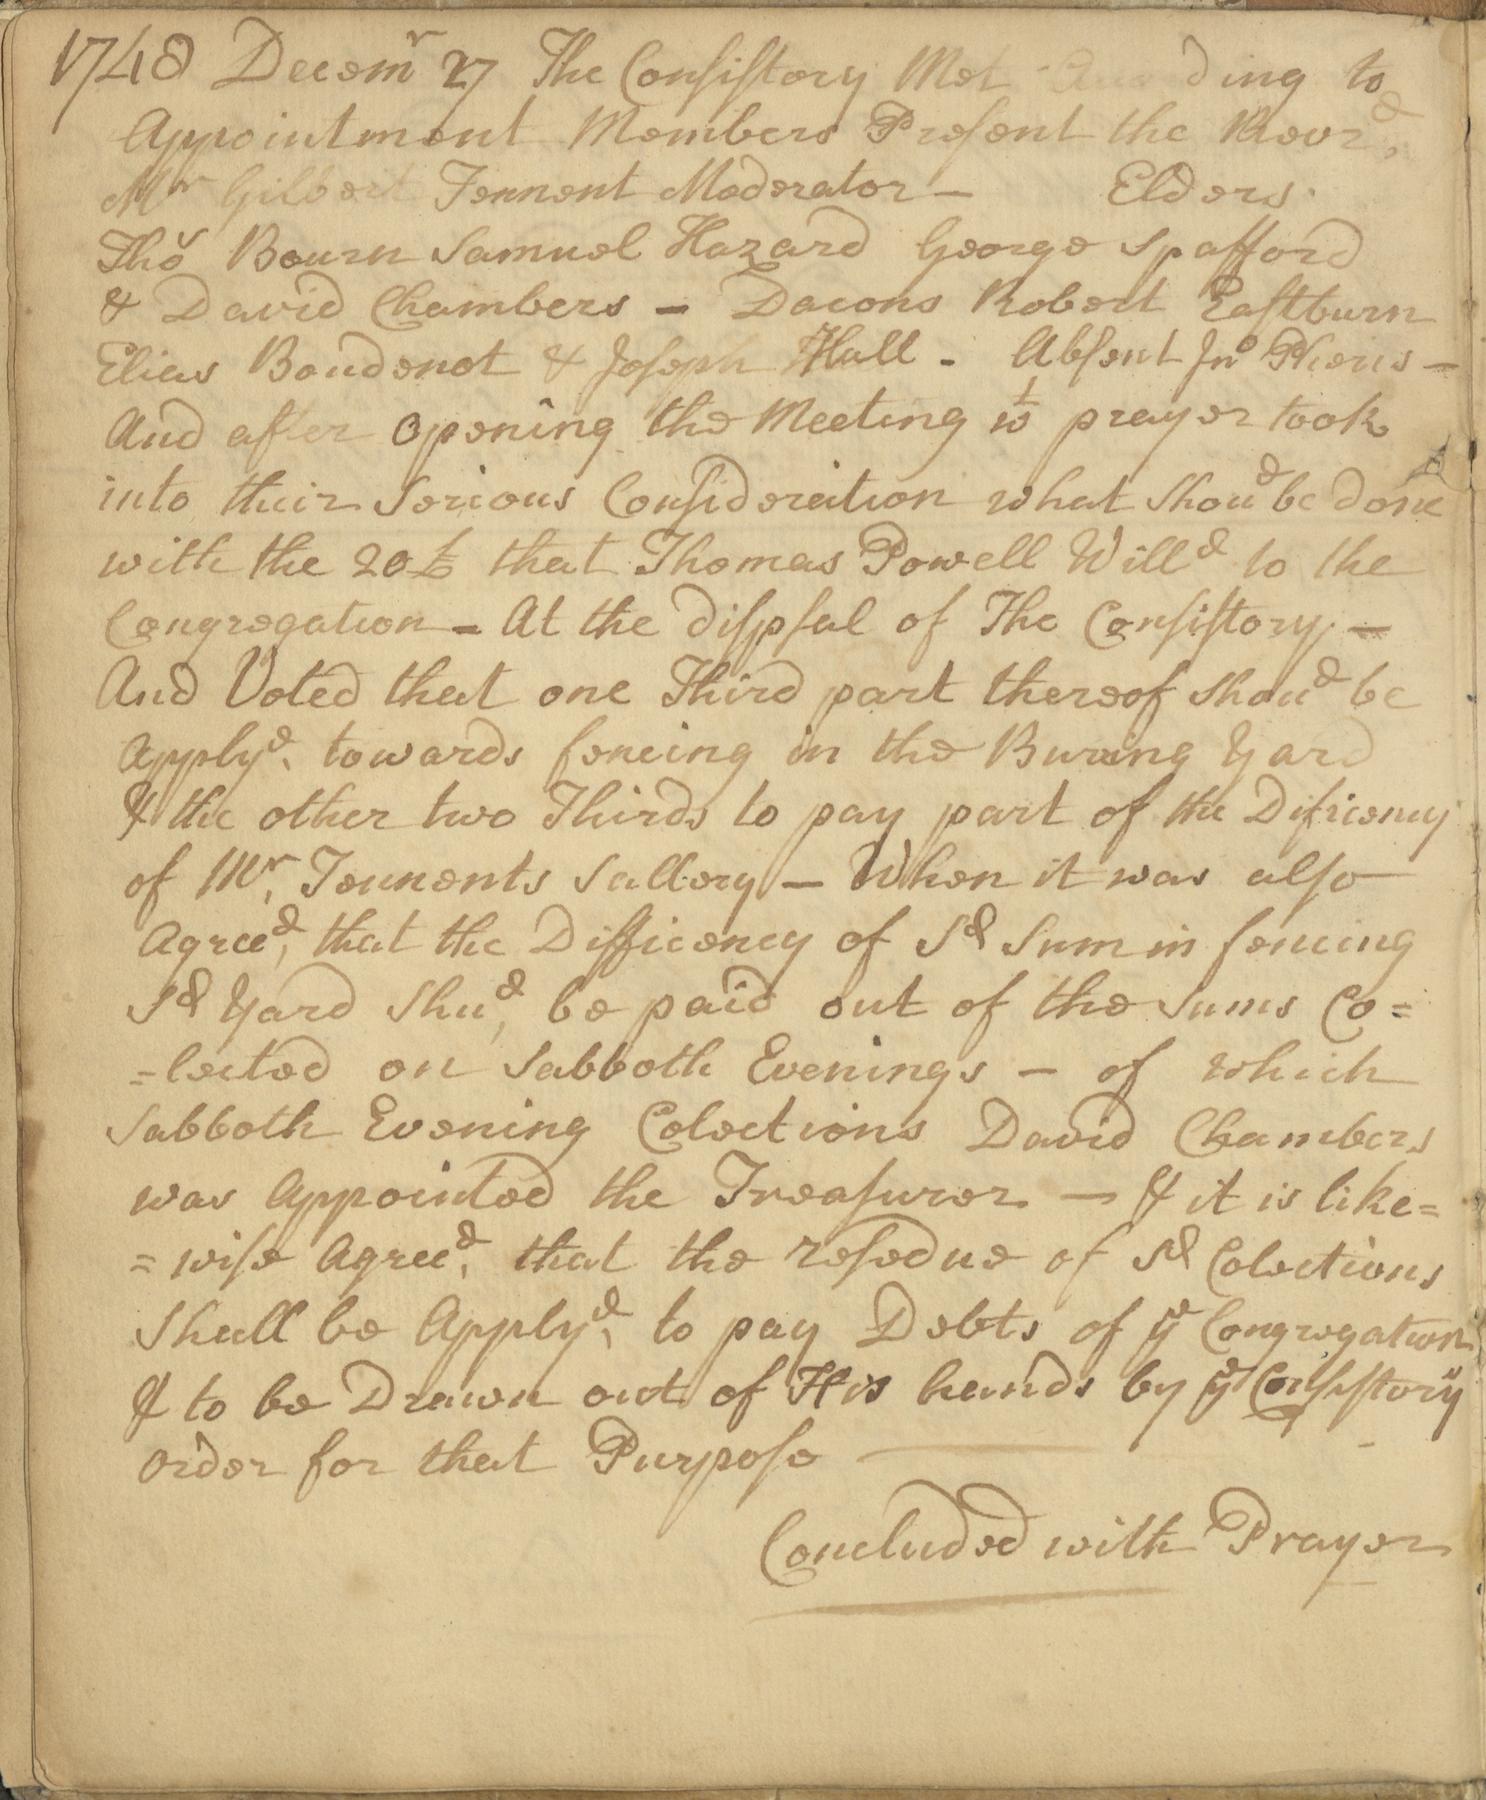 1748 Decemr 27 The Consistory Met According to
Appointment Members Present the Revrd,
Mr Gilbert Tennent Moderator — Elders.
Thos Bourn Samuel Hazard George Spafford
& David Chambers – Dacons Robert Eastburn
Elias Boudenot & Joseph Hall - Absent Jno —
And after Opening the Meeting wt prayer took
into their Serious Consideration what Shoud be done
with the 20£ that Thomas Powell Willd to the
Congregation – At the dispsal of The Consistory —
And Voted that one Third part thereof Shoud be
Applyd, towards fencing in the Buring Yard
& the other two Thirds to pay part of the Dificency
of Mr, Tennents Sallery — When it was also
Agreed, that the Difficency of Sd Sum in fencing
Sd Yard Shud, be paid out of the Sums Co=
=lected on Sabboth Evenings – of which
Sabboth Evening Colections David Chambers
was Appointed the Treasurer — & it is like=
=wise Agreed, that the resedue of Sd Colections
Shall be Applyd, to pay Debts of ye Congregation
& to be Drawn out of His hands by ye Consistory
order for that Purpose —
Concluded with Prayer